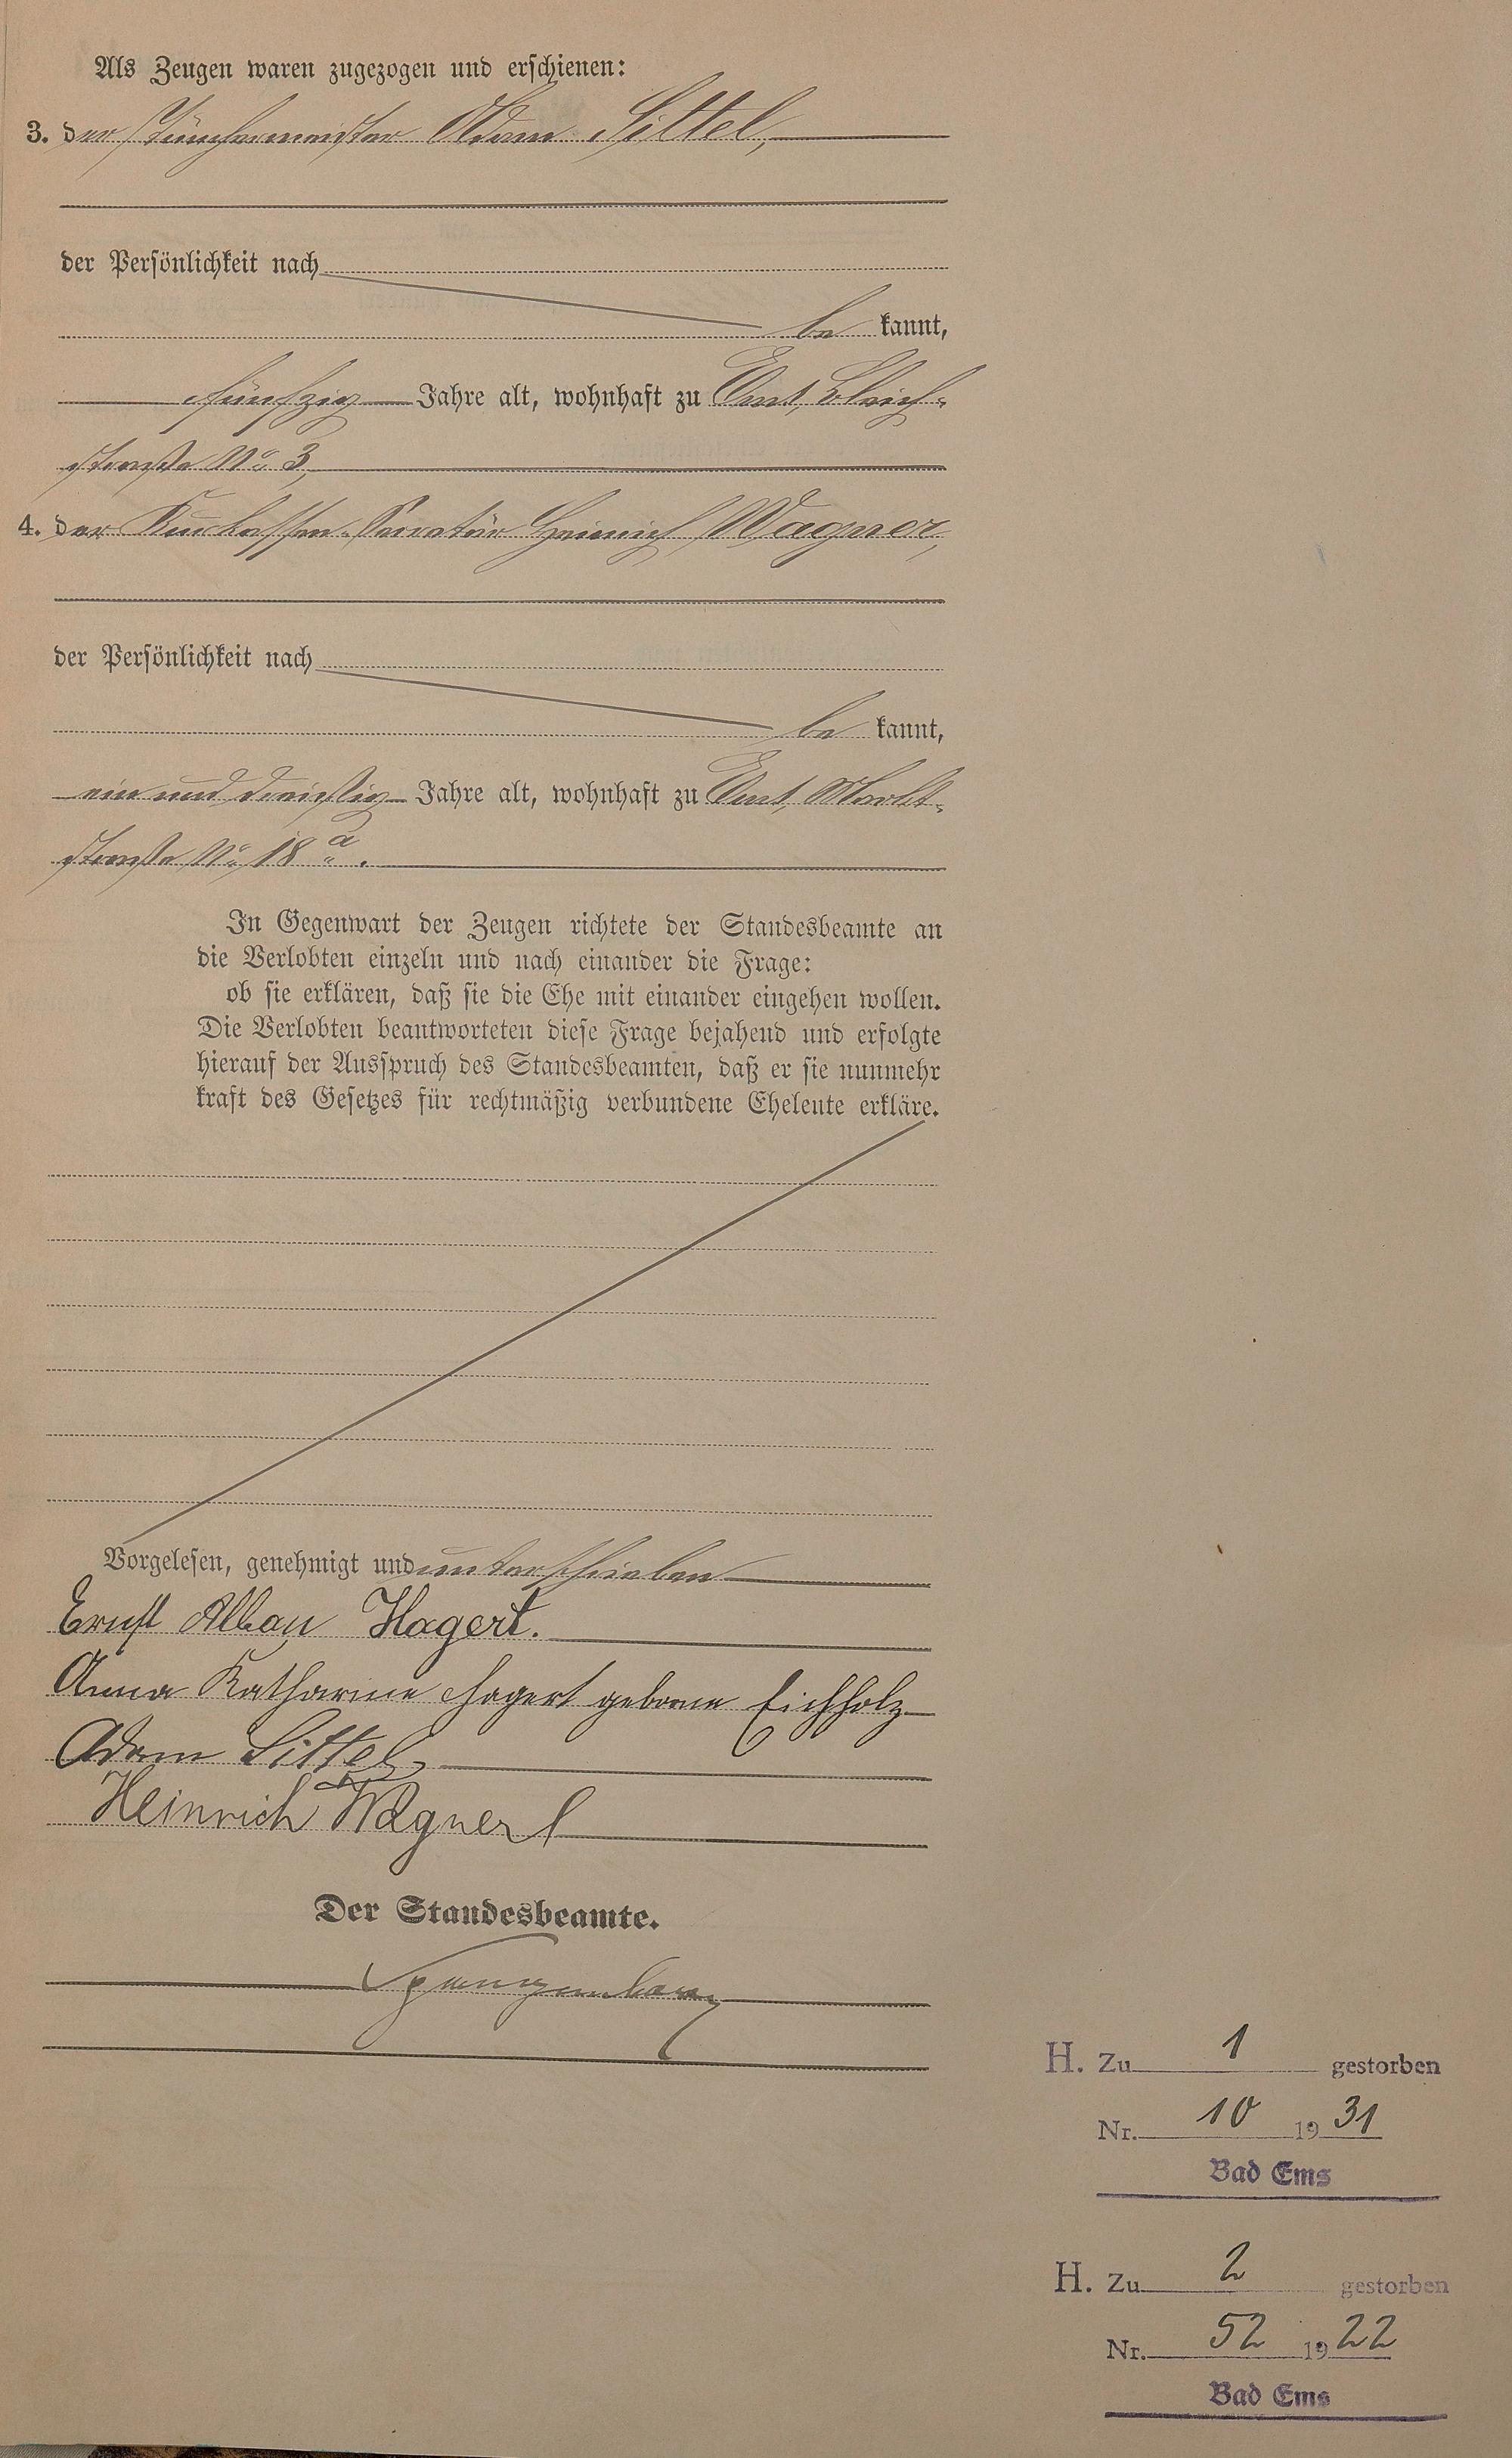 Als Zeugen waren zugezogen und erschienen:
3. der Tünchermeister Adam Sittel,
der Persönlichkeit nach
be kannt,
fünfzig Jahre alt, wohnhaft zu Ems, Bleich-
straße No 3,
4. der Kurkassen-Sekretär Heinrich Wagner,
der Persönlichkeit nach
be kannt,
ein und dreißig Jahre alt, wohnhaft zu Ems, Markt-
straße No 18 a.
In Gegenwart der Zeugen richtete der Standesbeamte an
die Verlobten einzeln und nach einander die Frage:
ob sie erklären, daß sie die Ehe mit einander eingehen wollen.
Die Verlobten beantworteten diese Frage bejahend und erfolgte
hierauf der Ausspruch des Standesbeamten, daß er sie nunmehr
kraft des Gesetzes für rechtmäßig verbundene Eheleute erkläre.
Vorgelesen, genehmigt und unterschrieben
Ernst Alban Hagert.
Anna Katharine Hagert geborene Eichholz
Adam Sittel
Heinrich Wagner
Der Standesbeamte.
Spangenberg
H. Zu 1 gestorben
Nr. 10 1931
Bad Ems
H. Zu 2 gestorben
Nr. 52 1922
Bad Ems